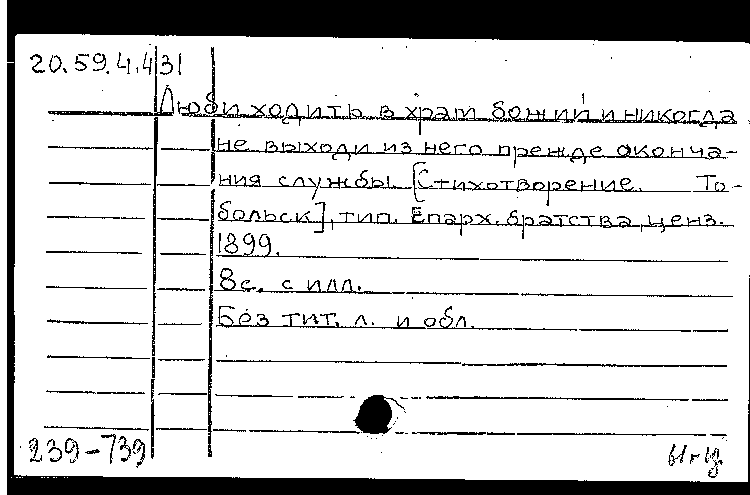 20.59.4.431
Люби ходить в храм божий и никогда
не выходи из него прежде оконча-
ния службы [Стихотворение. То-
больск], тип. Епарх. братства, ценз.
1899.
8с. с илл.
Без тит. л. и обл.
239-739